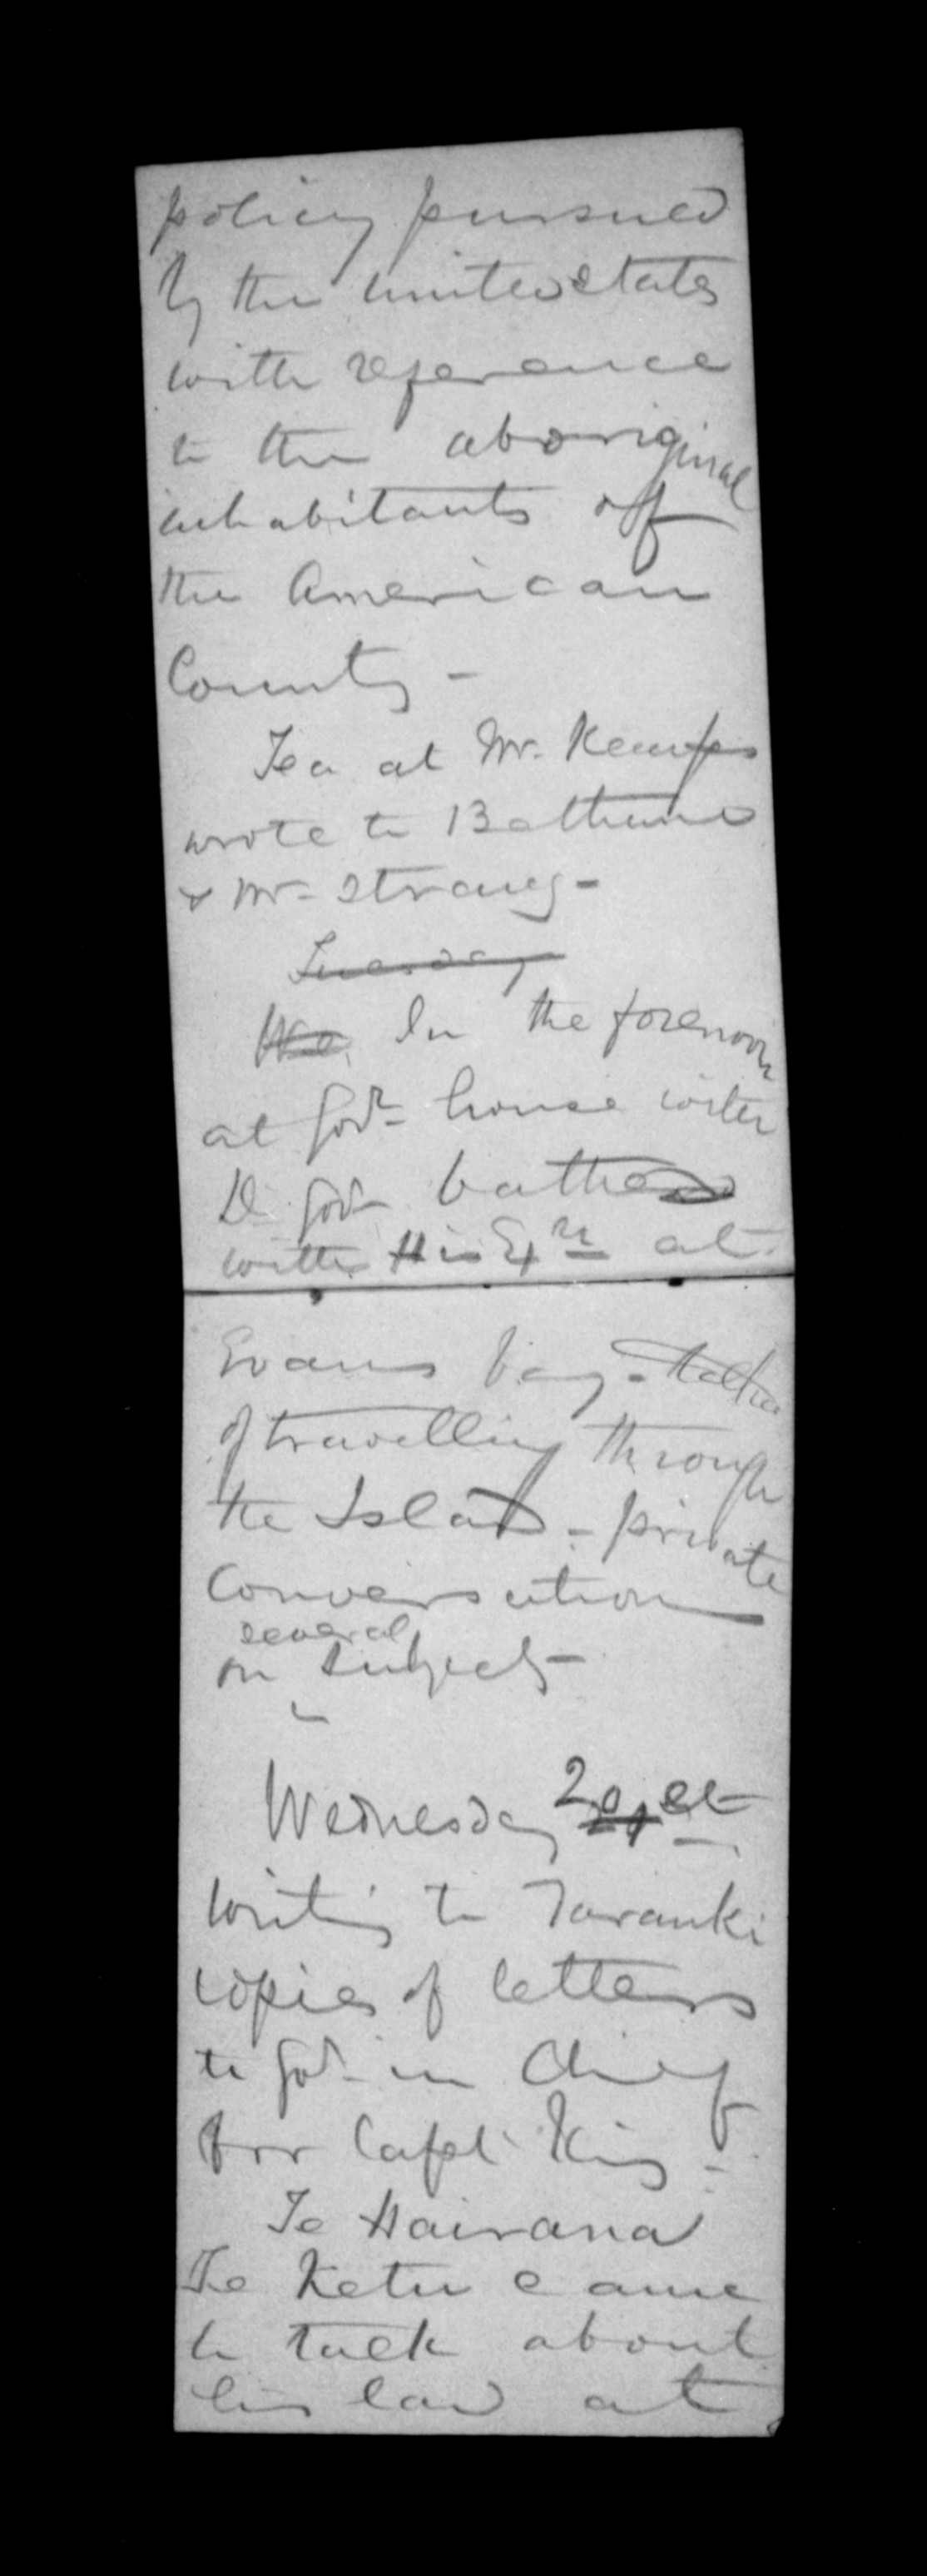 policy pursued
by the united states
with reference
to the aboriginal
inhabitants off
the American
County -
Tea at Mr. Kemps
wrote to Bethune
& Mr Strang -
Tuesday
We In the forenoon
at Govr house with
Lt Govr bathed
with His Exy at
Evans bay - talked
of travelling through
the Island - private
Conversation
several
on subjects -
Wednesday
writing to Taranki
copies of letters
to Govr in Chief
for Capt King -
Te Hairana
Te Ketu came
to talk about
his land at